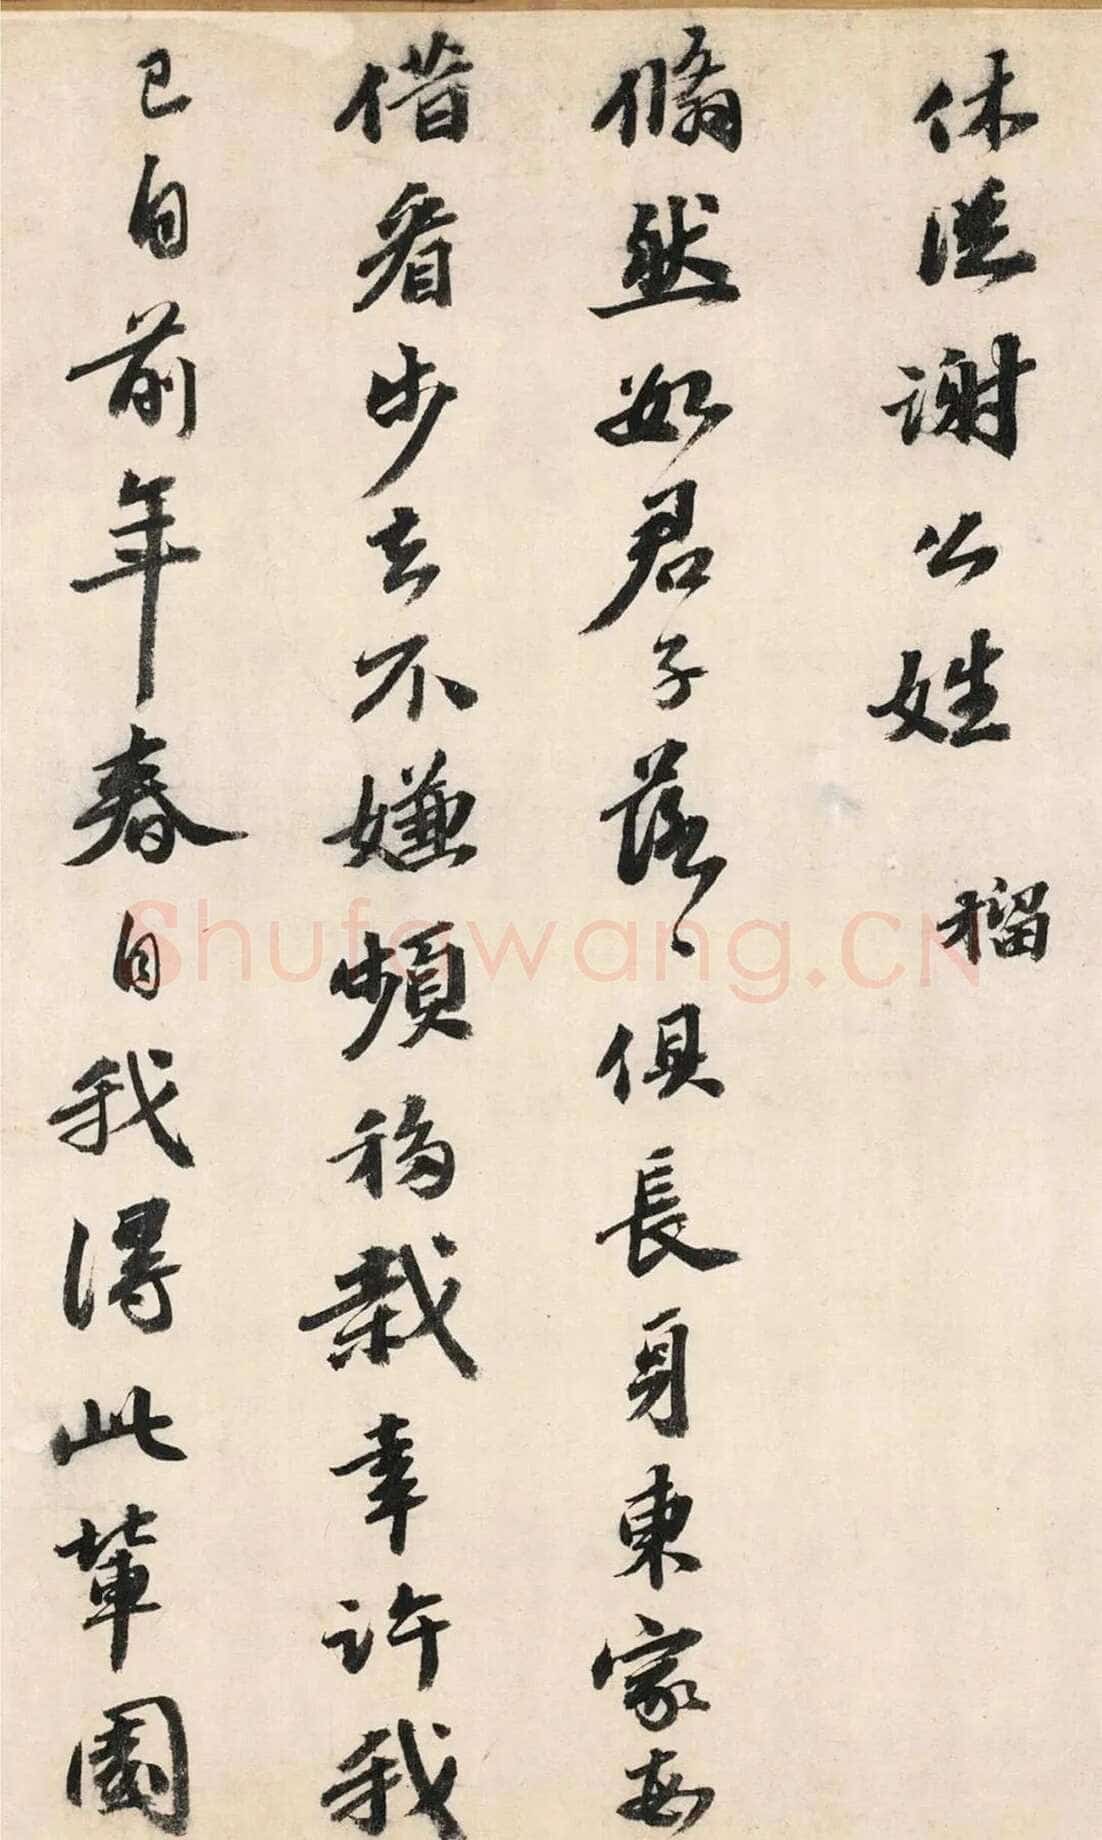 休從謝公姓 榴
翛然如君子落〻俱長身東家每
借看步去不嫌頻移栽幸許我
已自前年春自我得此輩園
Shufawang.CN